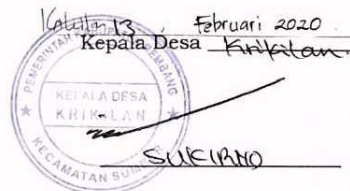 Krikilan, 13 Februari 2020
Kepala Desa Krikilan
PEMERINTAH KABUPATEN REMBANG
KEPALA DESA
KRIKILAN
KECAMATAN SUMBER
SUKIRNO